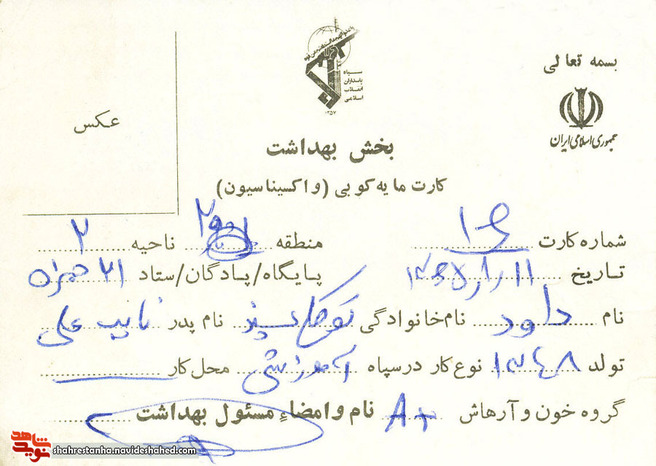 بسمه تعالی
سپاه
پاسداران
انقلاب
اسلامی
۱۳۵۷
جمهوری اسلامی ایران
عکس
بخش بهداشت
کارت مایه کوبی (واکسیناسیون)
شماره کارت ۱۰۶ منطقه ناحیه ۲
تاریخ پایگاه/پادگان/ستاد ۲۱ حمزه
نام داود نام خانوادگی نام پدر نایب علی
تولد ۱۳۴۸ نوع کار در سپاه آموزشی محل کار
گروه خون و آرهاش A+ نام و امضاء مسئول بهداشت
نوید شاهد
shahrestanha.navideshahed.com